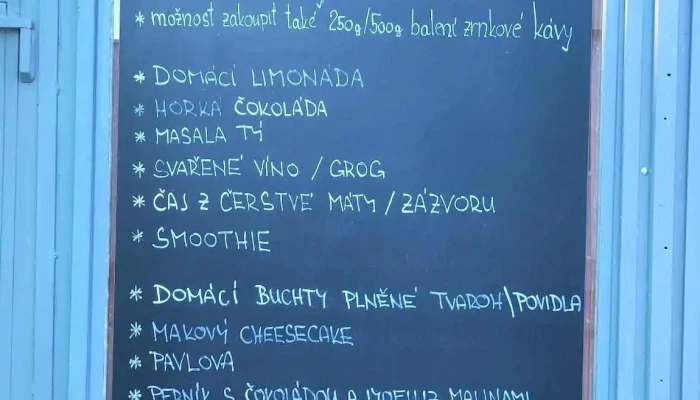 * možnost zakoupit také 250g/500g balení zrnkové kávy
* DOMÁCÍ LIMONÁDA
* HORKÁ ČOKOLÁDA
* MASALA TÝ
* SVAŘENÉ VÍNO / GROG
* ČAJ Z ČERSTVÉ MÁTY / ZÁZVORU
* SMOOTHIE
* DOMÁCÍ BUCHTY PLNĚNÉ TVAROH\POVIDLA
* MAKOVÝ CHEESECAKE
* PAVLOVA
* PERNÍK S ČOKOLÁDOU A MALINAMI